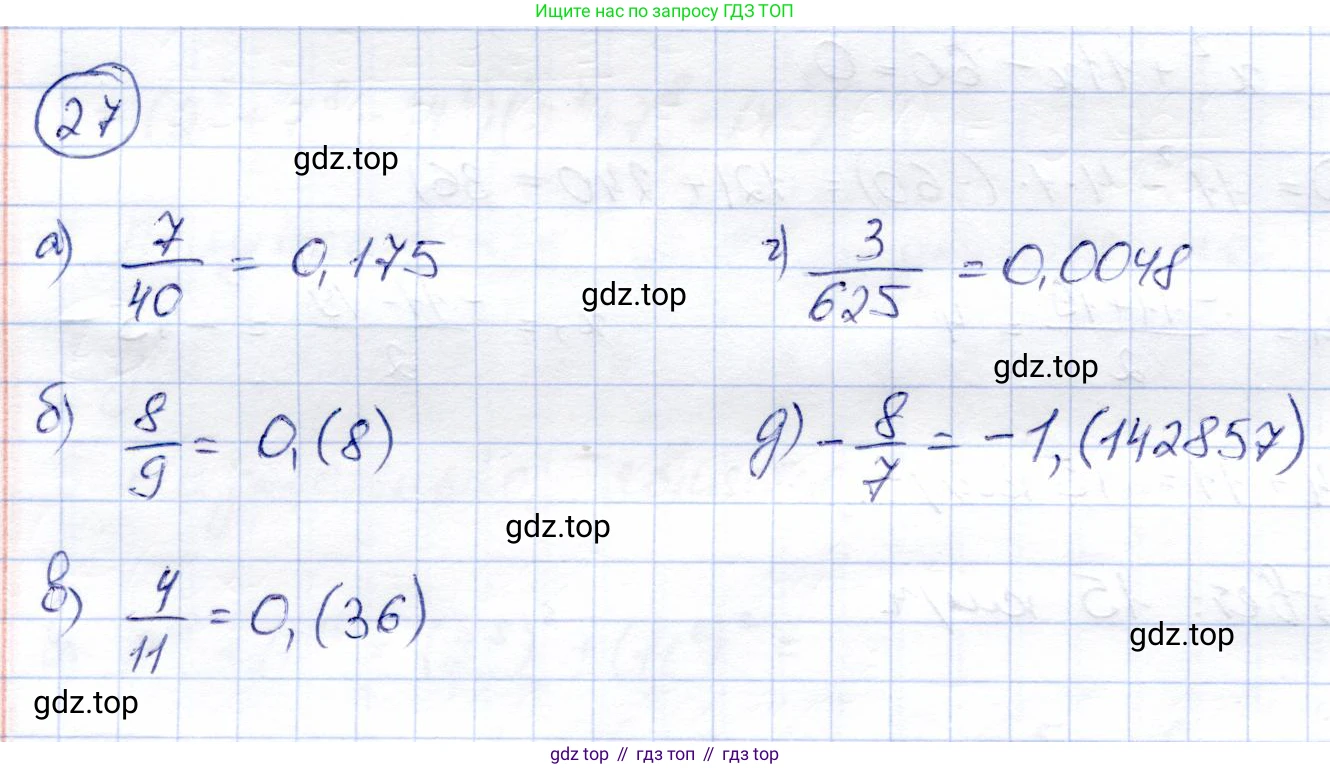 Ищите нас по запросу ГДЗ ТОП
27
gdz.top
а) 7/40 = 0,175
г) 3/625 = 0,0048
gdz.top
gdz.top
б) 8/9 = 0,(8)
д) - 8/7 = -1,(142857)
gdz.top
в) 4/11 = 0,(36)
gdz.top
gdz.top
gdz top // гдз топ // гдз top